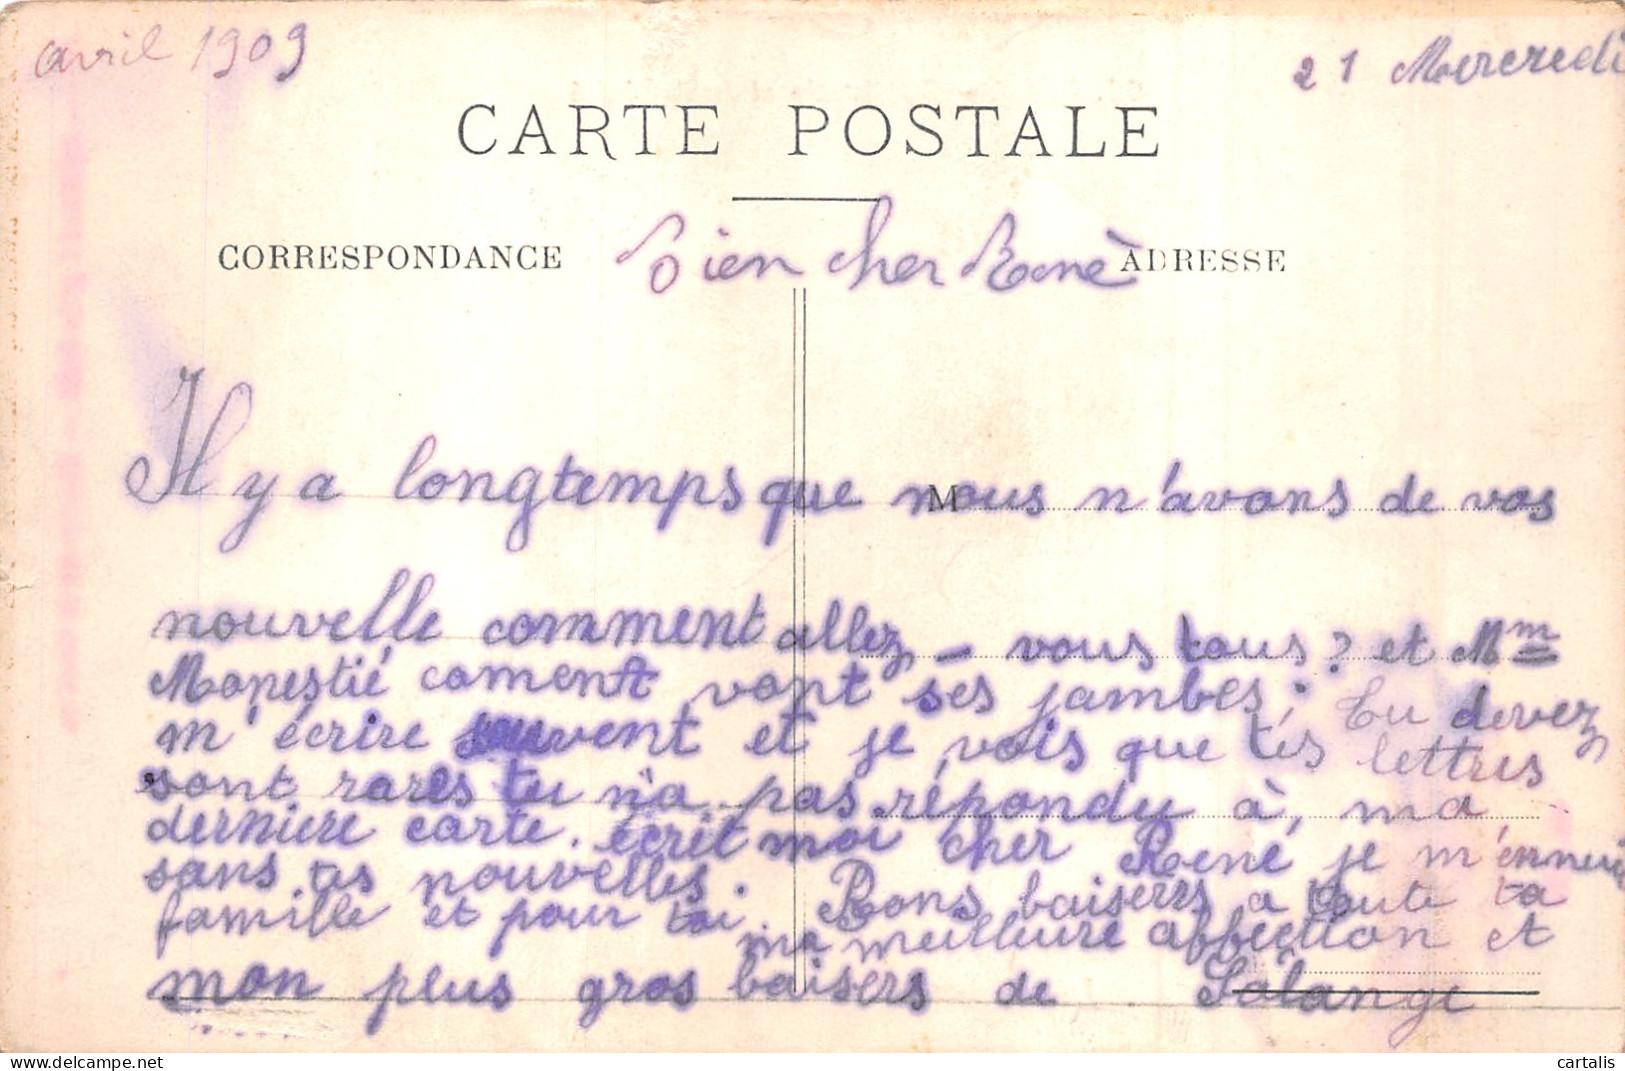 avril 1909
21 Mercredi
CARTE POSTALE
CORRESPONDANCE
ADRESSE
Bien cher René
M
Il y a longtemps que nous n'avons de vos
nouvelle comment allez - vous tous ? et Mm
coment vont ses jambes. Tu devez
m'écrire souvent et je vois que tes lettres
sont rares tu n'a pas répondu à ma
derniere carte. écrit moi cher René, je m'ennui
sans tes nouvelles. Bons baisers a toute ta
famille et pour toi ma meilleure affection et
mon plus gros baisers de Solange
cartalis